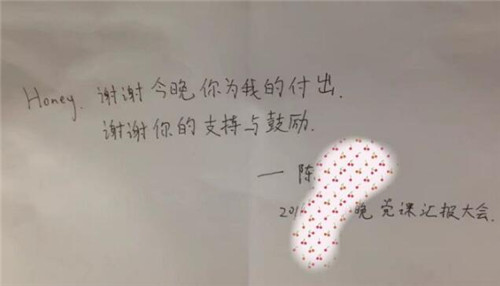 Honey. 谢谢今晚你为我的付出.
谢谢你的支持与鼓励.
— 陈
201 晚党课汇报大会.